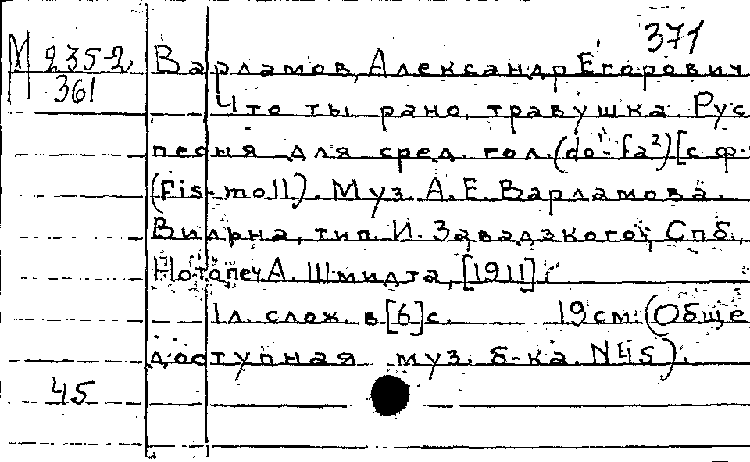 371
М 235-2
361
Варламов, Александр Егорович
Что ты рано, травушка. Рус
песня для сред. гол. (do¹-fa²) [с ф-
(Fis-moll). Муз. А. Е. Варламова.
Вильна, тип. И. Завадзкого; Спб.,
Нотопеч. А. Шмидта, [1911].
1л. слож. в [6] с. 19 см. (Обще
доступная муз. б-ка. N45).
45